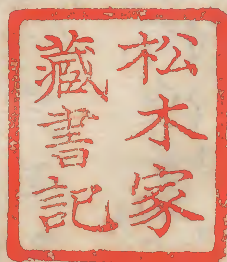 松木家
藏書記